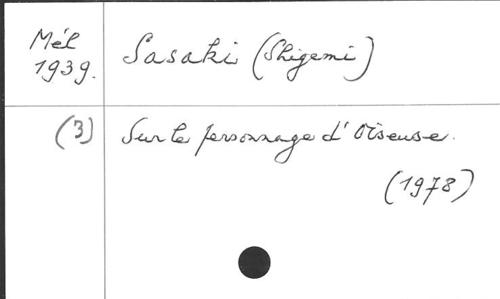 Mél
1939.
Sasaki (Shigemi)
(3)
Sur le personnage d'Oiseuse.
(1978)